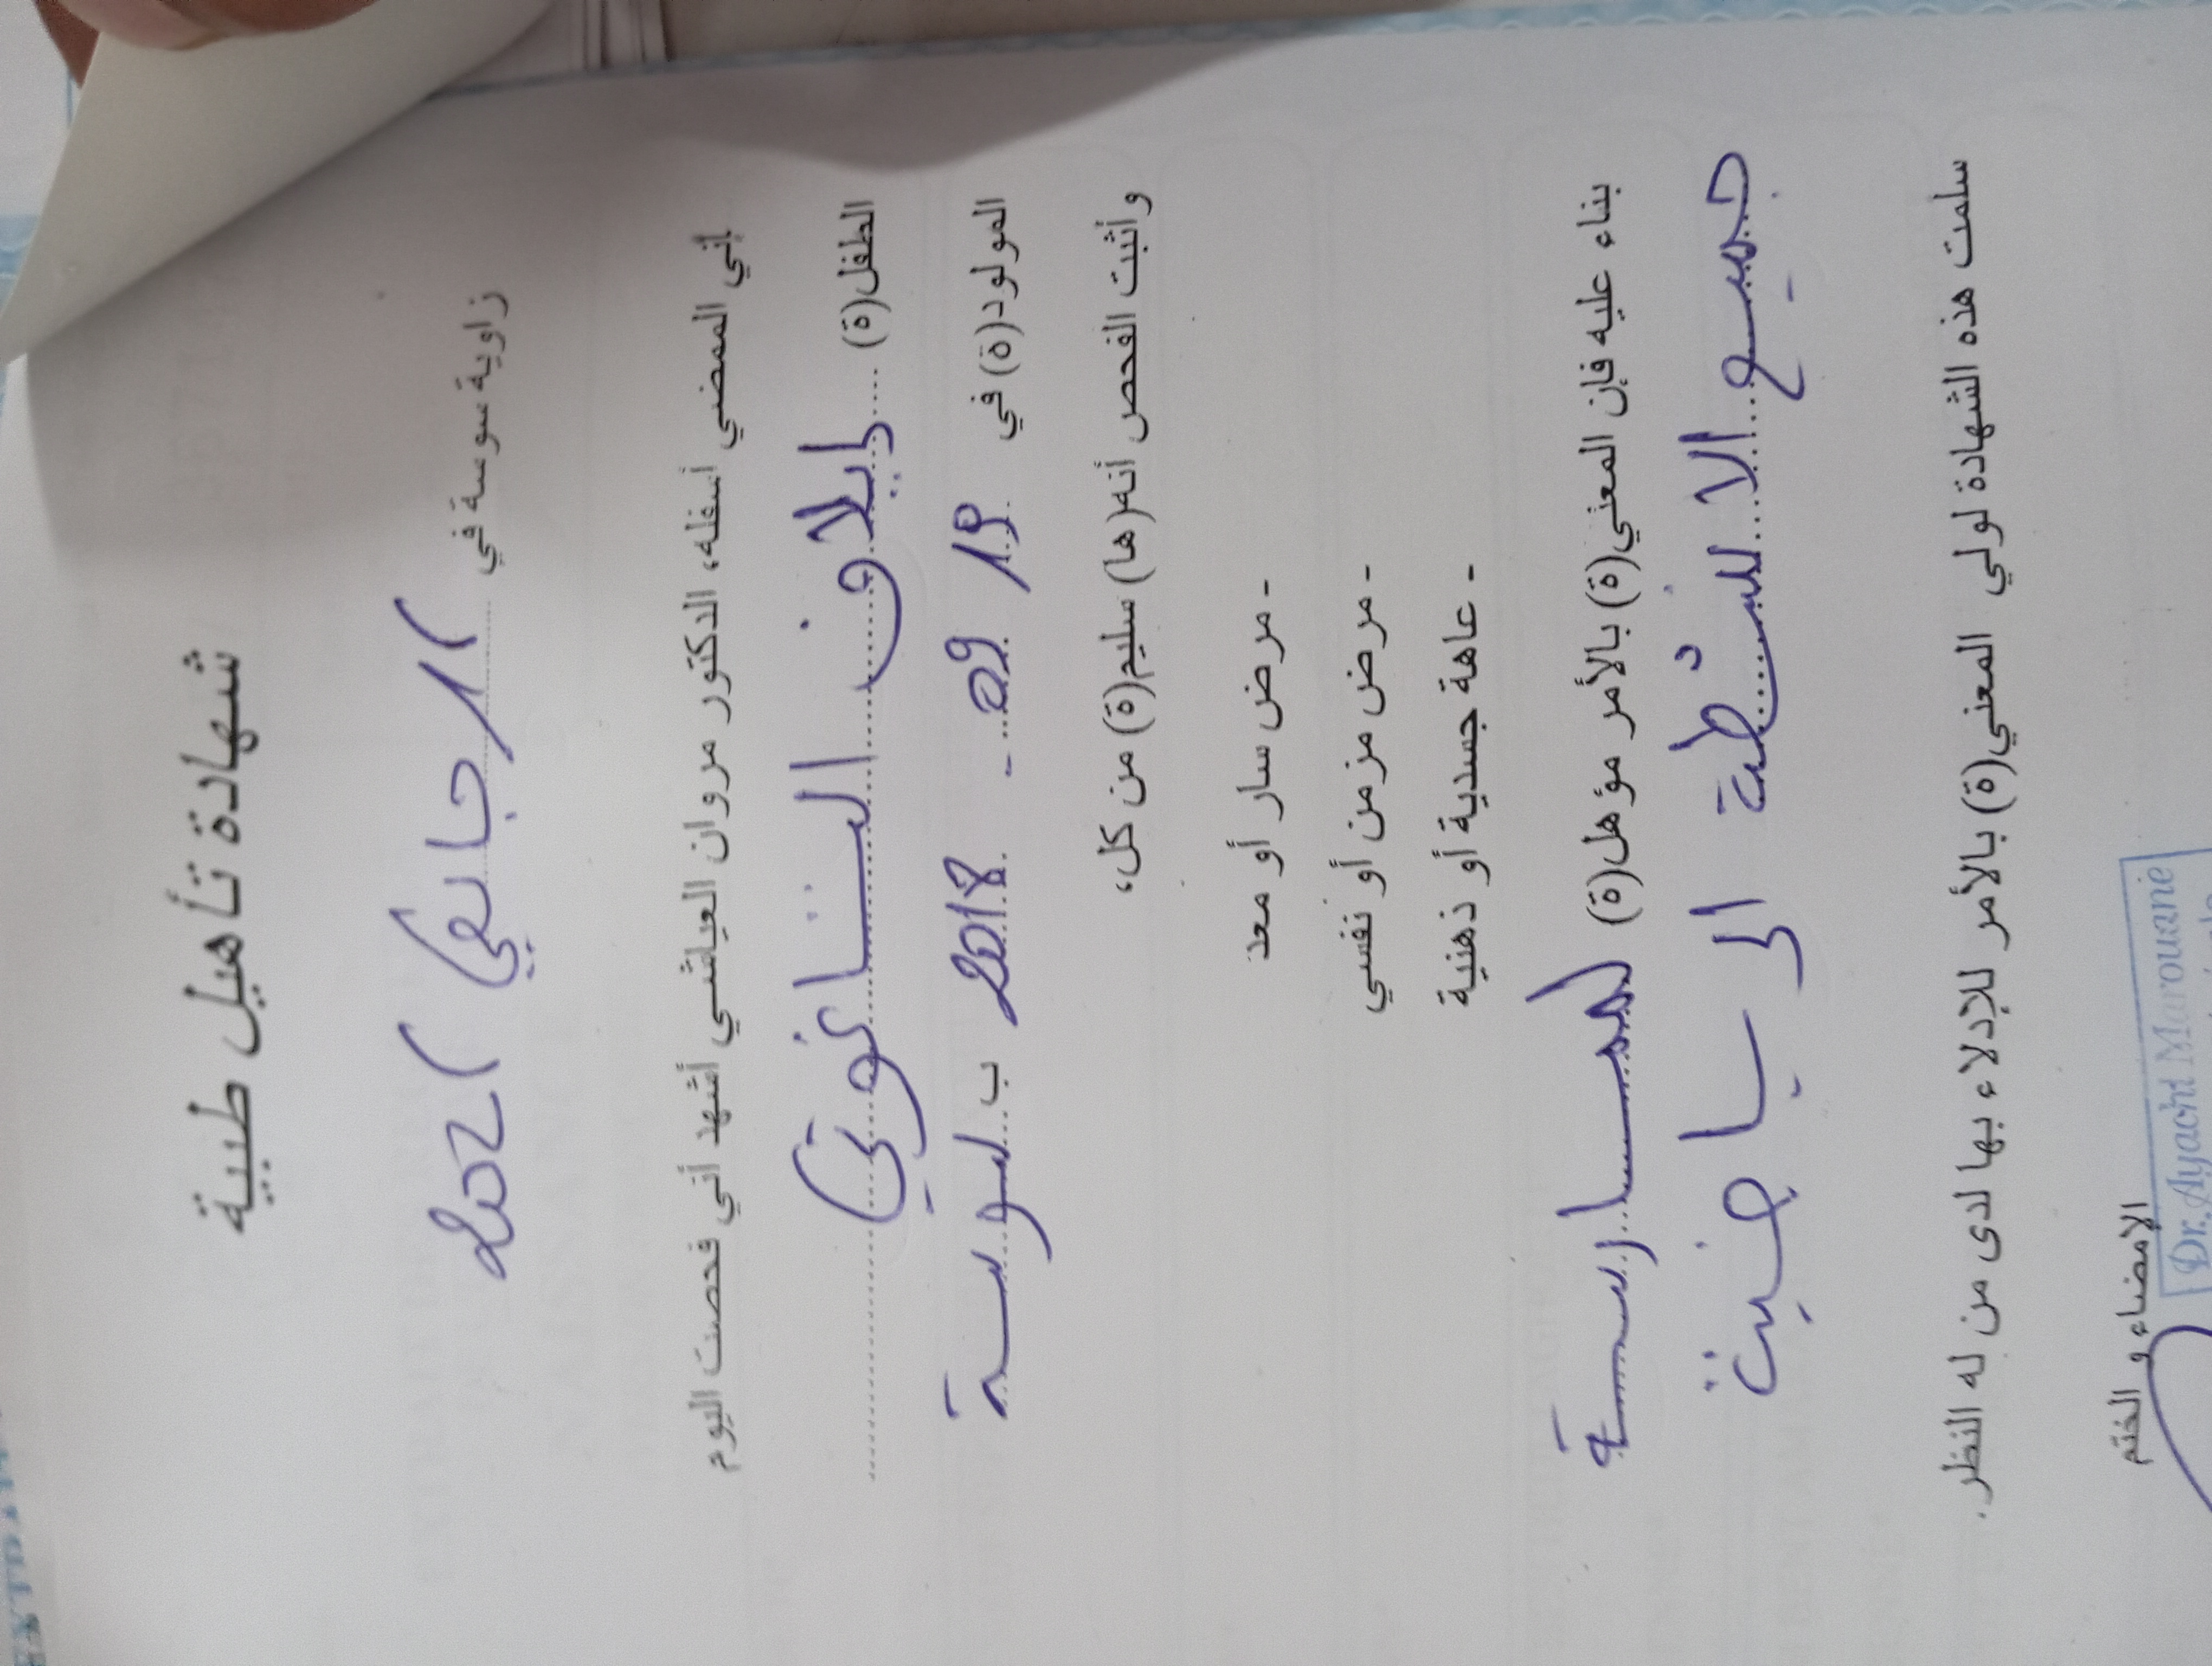 شهادة تأهيل طبية
زاوية سوسة في 1 / جانفي / 2021
إني الممضي أسفله، الدكتور مروان العياشي أشهد أني فحصت اليوم
الطفل(ة) .... إيلاف الستاغوتي
المولود(ة) في 19 09 - 2018 ب سوسة
وأثبت الفحص أنه(ها) سليم(ة) من كل،
- مرض سار أو معد
- مرض مزمن أو نفسي
- عاهة جسدية أو ذهنية
بناء عليه فإن المعني(ة) بالأمر مؤهل(ة) لممارسة
جميع الانشطة الرياضية
سلمت هذه الشهادة لولي المعني(ة) بالأمر للإدلاء بها لدى من له النظر.
الإمضاء و الختم
Dr. Ayachi Marouane